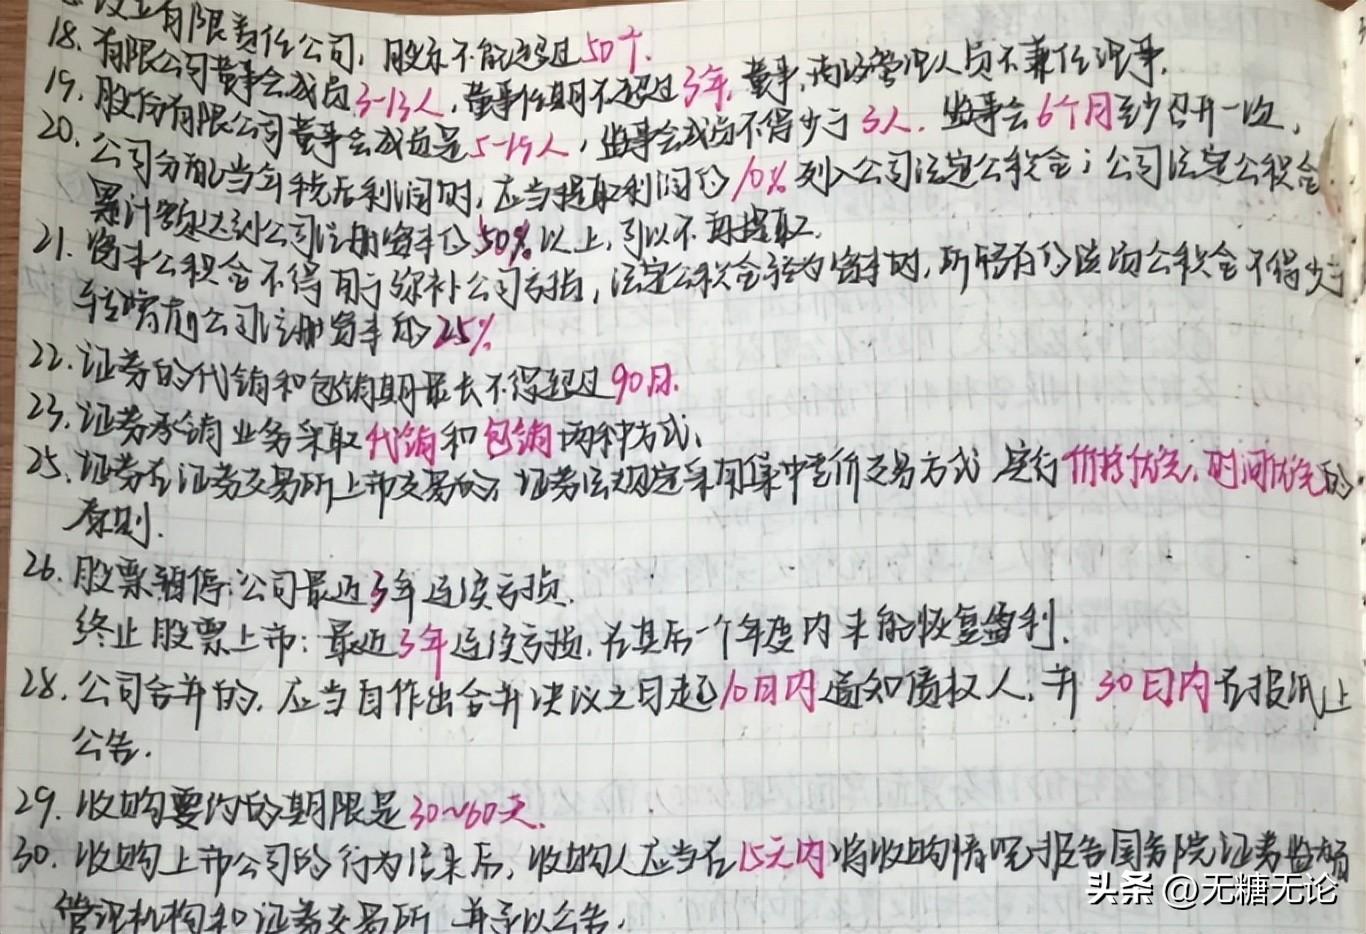 设立有限责任公司，股东不能超过50个.
18. 有限公司董事会成员3-13人，董事任期不超过3年，董事，高级管理人员不兼任监事.
19. 股份有限公司董事会成员是5-19人，监事会成员不得少于3人. 监事会6个月至少召开一次，
20. 公司分配当年税后利润时，应当提取利润的10%列入公司法定公积金；公司法定公积金
累计额达到公司注册资本的50%以上，可以不再提取.
21. 资本公积金不得用于弥补公司亏损，法定公积金转为资本时，所留存的该项公积金不得少于
转增前公司注册资本的25%
22. 证券的代销和包销期最长不得超过90日.
23. 证券承销业务采取代销和包销两种方式.
25. 证券在证券交易所上市交易的，证券法规定采用集中竞价交易方式 实行价格优先，时间优先的
原则.
26. 股票暂停：公司最近3年连续亏损.
终止股票上市：最近3年连续亏损，在其后一个年度内未能恢复盈利.
28. 公司合并的，应当自作出合并决议之日起10日内通知债权人，并30日内在报纸上
公告.
29. 收购要约的期限是30~60天.
30. 收购上市公司的行为结束后，收购人应当在15天内将收购情况报告国务院证券监督
管理机构和证券交易所 并予以公告.
头条 @无糖无论